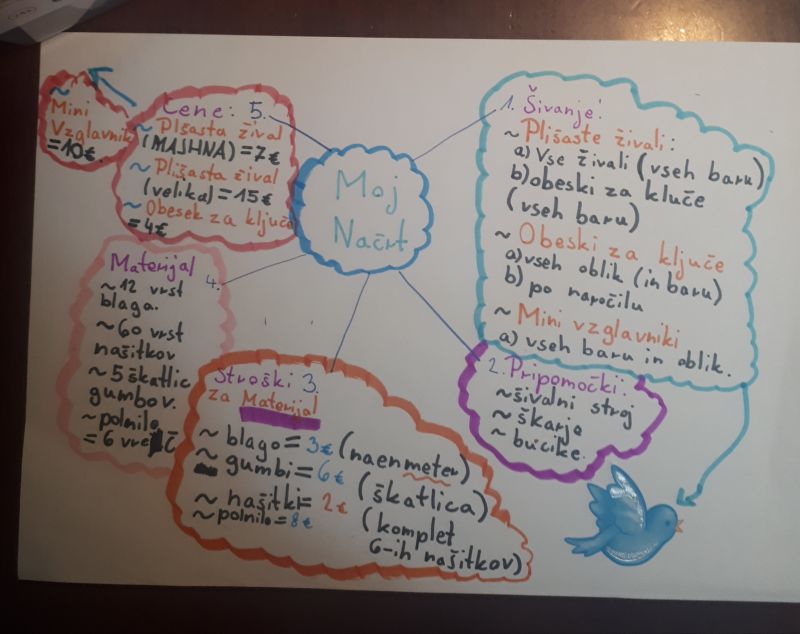 Moj
Načrt
1. Šivanje:
~ Plišaste živali:
a) Vse živali (vseh baru)
b) obeski za kluče
(vseh baru)
~ Obeski za ključe
a) vseh oblik (in baru)
b) po naročilu
~ Mini vzglavniki
a) vseh baru in oblik.
2. Pripomočki:
~ šivalni stroj
~ škarje
~ bucike.
Stroški 3.
za Materijal
~ blago = 3€ (na en meter)
~ gumbi = 6€ (škatlica)
~ našitki = 2€ (komplet
6-ih našitkov)
~ polnilo = 8€
4.
Materijal
~ 12 vrst
blaga.
~ 60 vrst
našitkov
~ 5 škatlic
gumbov.
~ polnilo
= 6 vreč
Cene: 5.
~ Plšasta žival
(MAJHNA) = 7€
~ Plišasta žival
(velika) = 15€
~ Obesek za ključe
= 4€
~
Mini
Vzglavnik
= 10€